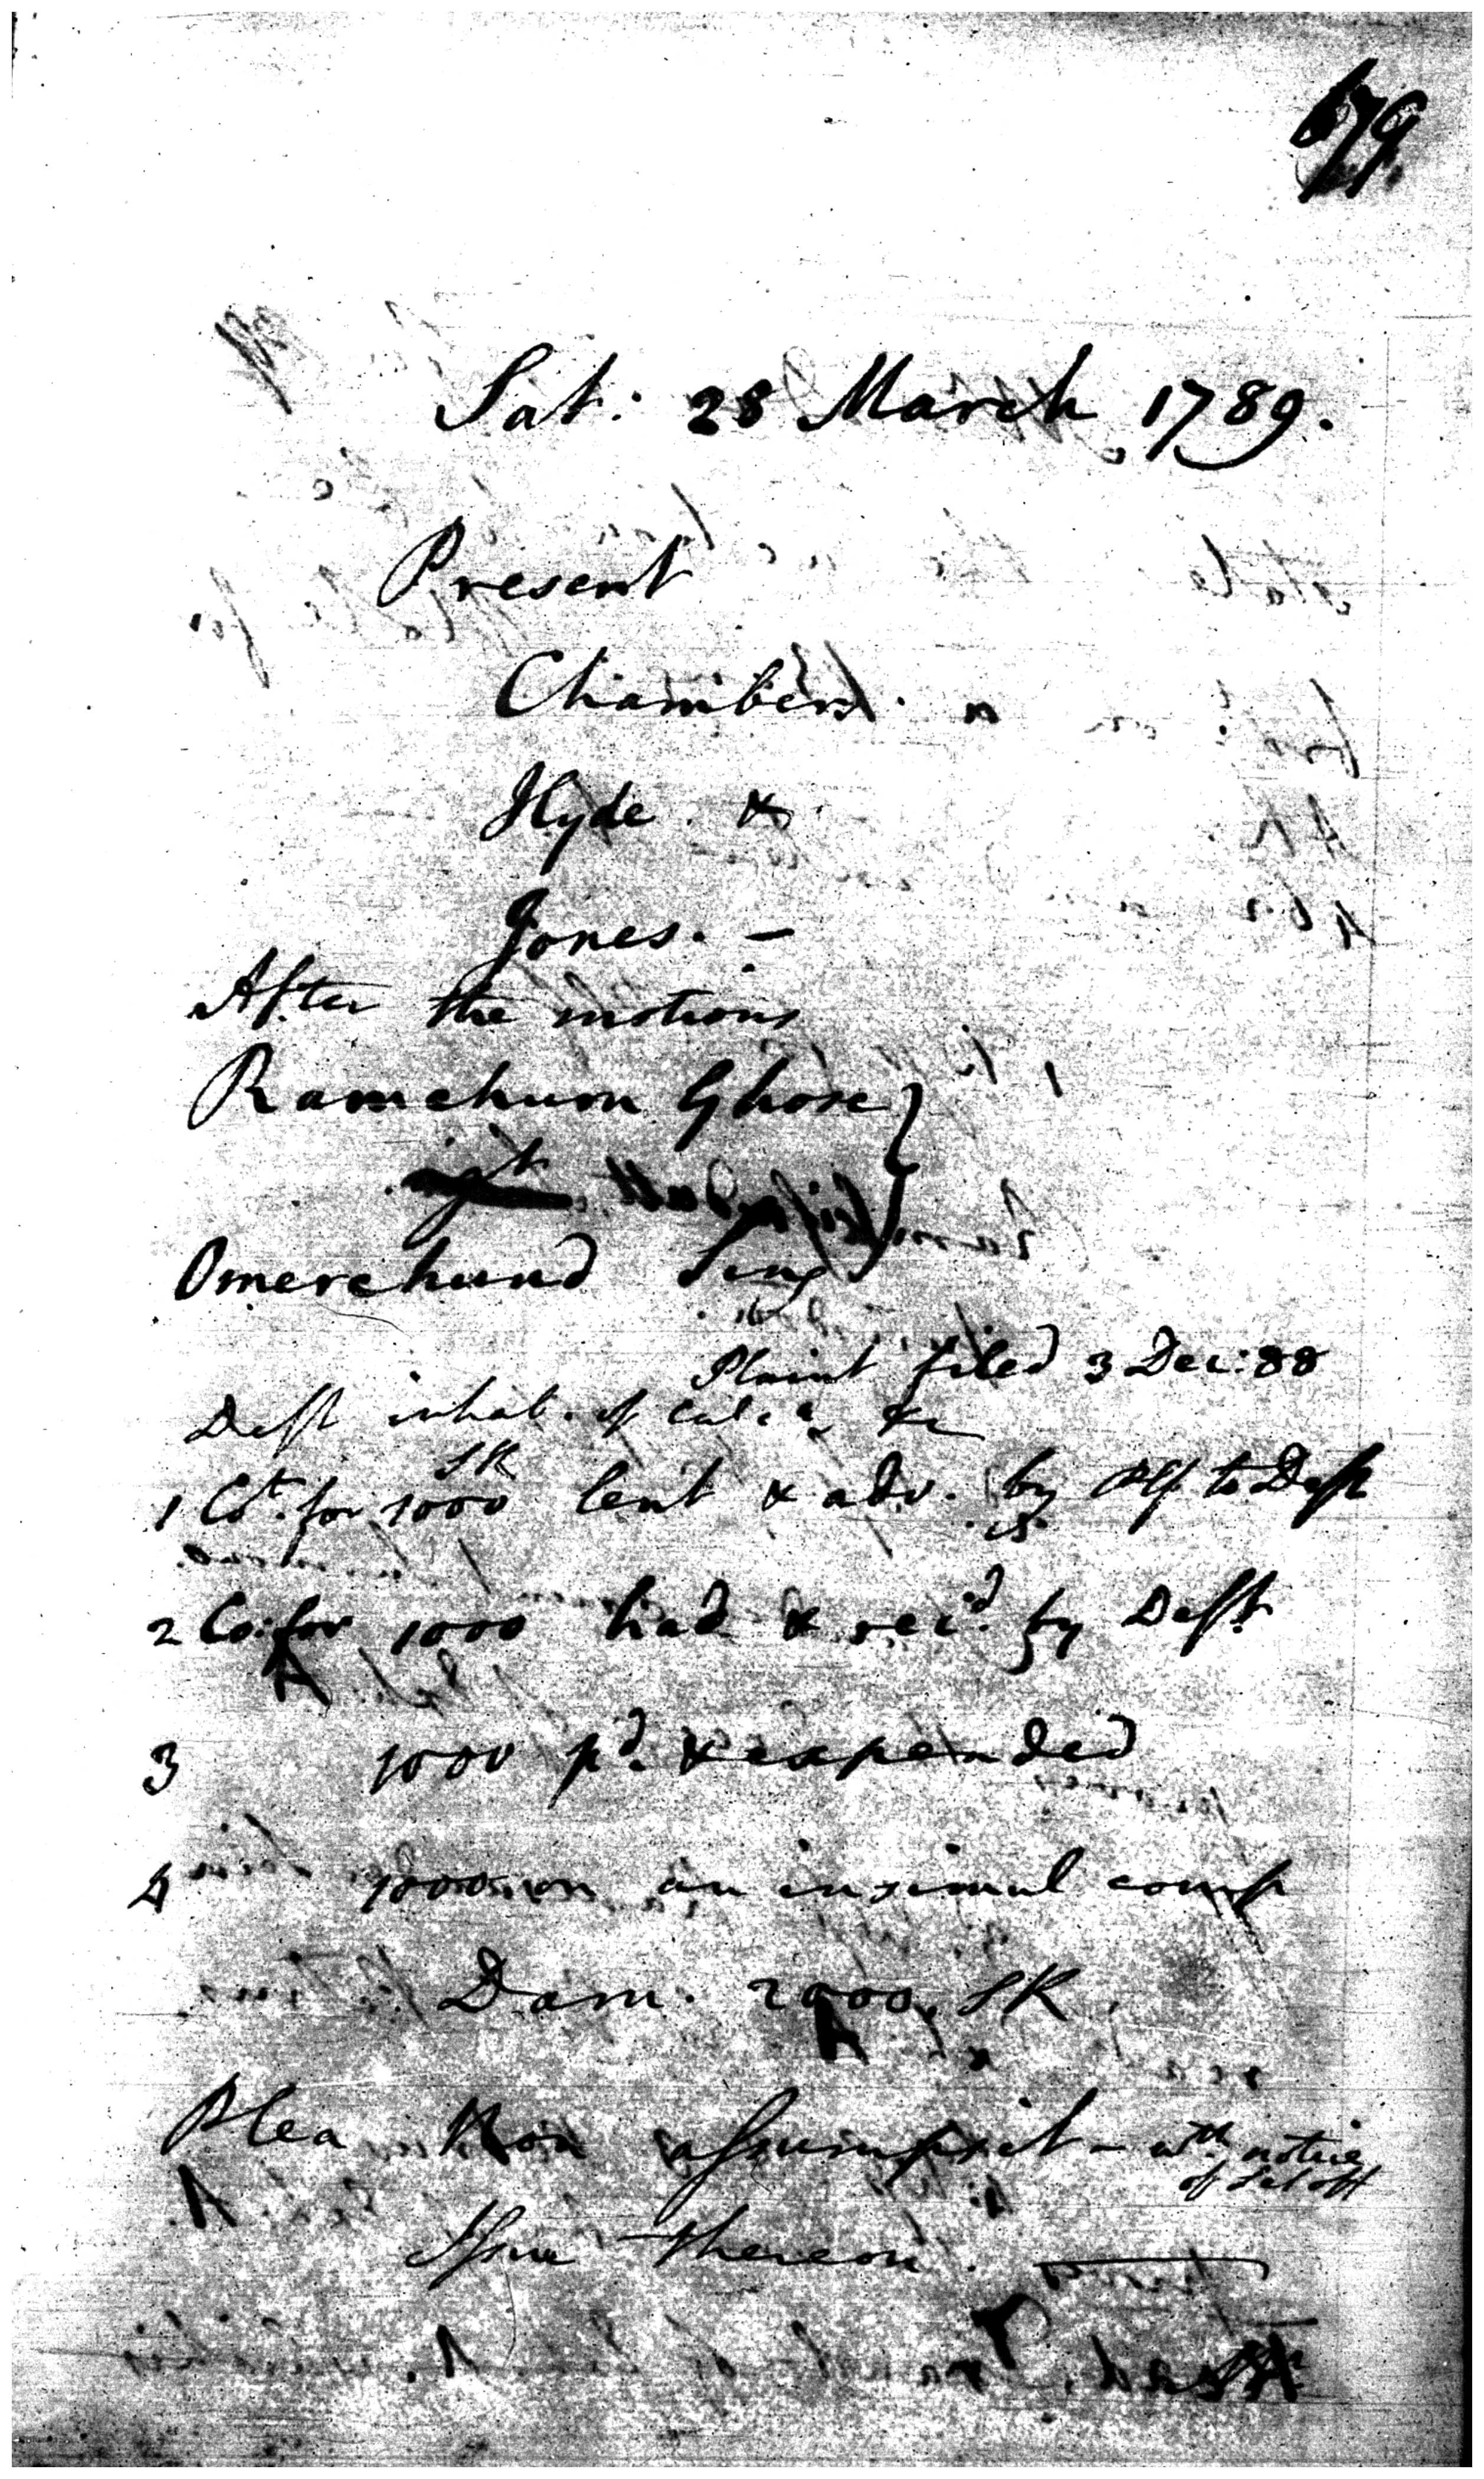 679
Sat: 28 March 1789.
Present
Chambers.
Hyde. &
Jones. —
After the motions
Ramchurn Ghose
agt
Omerchund Sing
Plaint filed 3 Dec: 88
Deft inhab. of Calca &c
SR
1 Ct. for 1000 lent & adv. by Plf to Deft
2 Co: for 1000 had & recd. by Deft
3 1000 pd. & expended
4 1000 on an insimul comp
Dam. 2000, SR.
Plea Non assumpsit - wth notice
of Set off
Issue thereon.